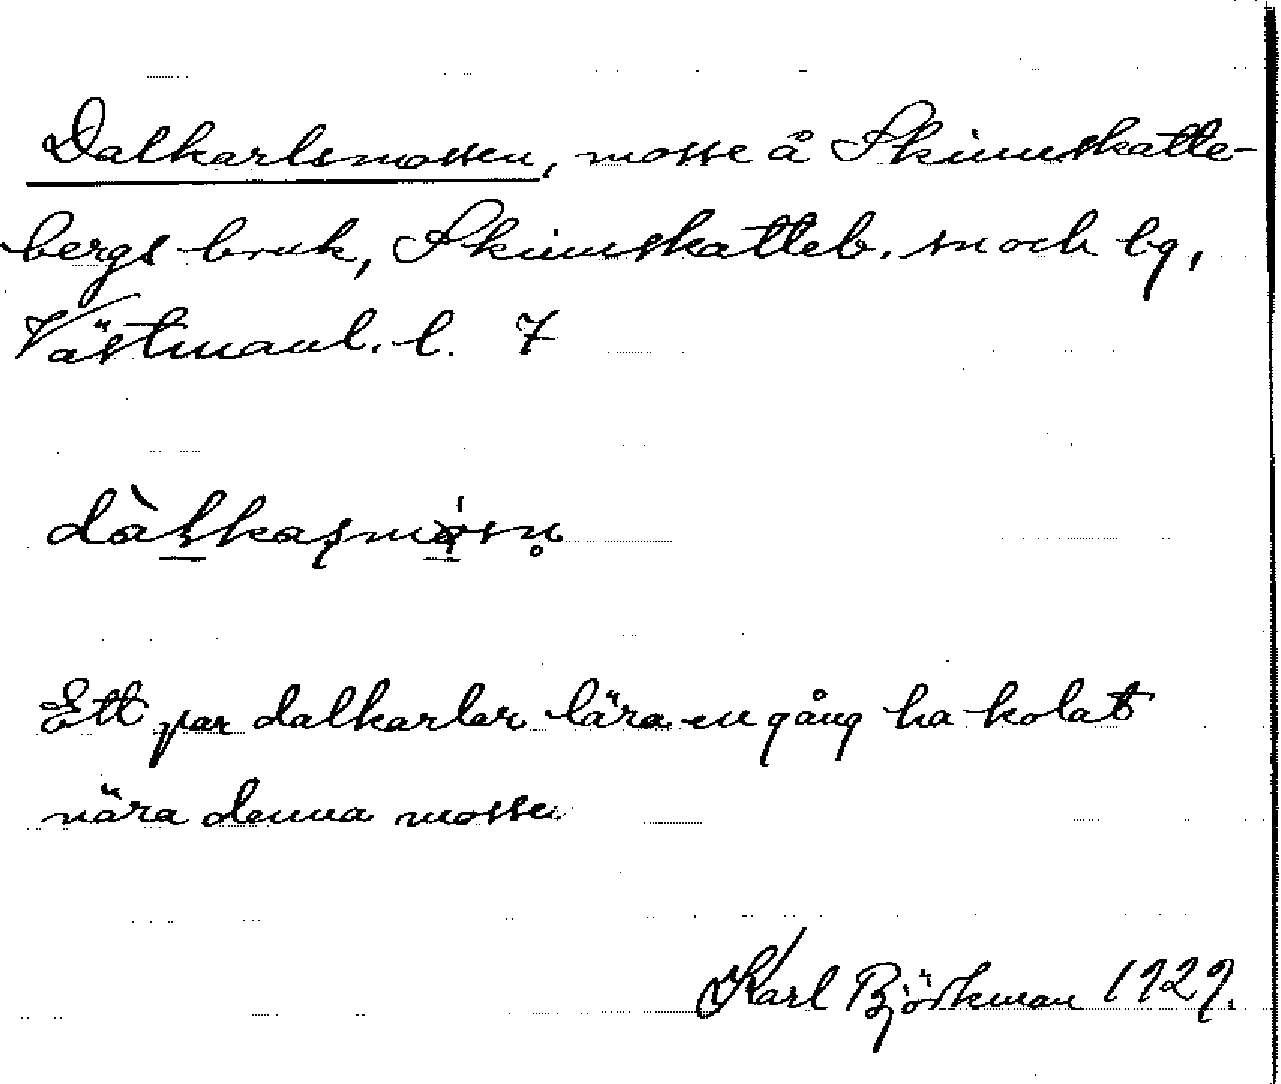 Dalkarlsmossen, mosse å Skinnskatte-
bergs bruk, Skinnskatteb. sn och bg,
Västmanl. l. 7
Ett par dalkarlar lära en gång ha kolat
nära denna mosse.
Karl Björkman 1929.